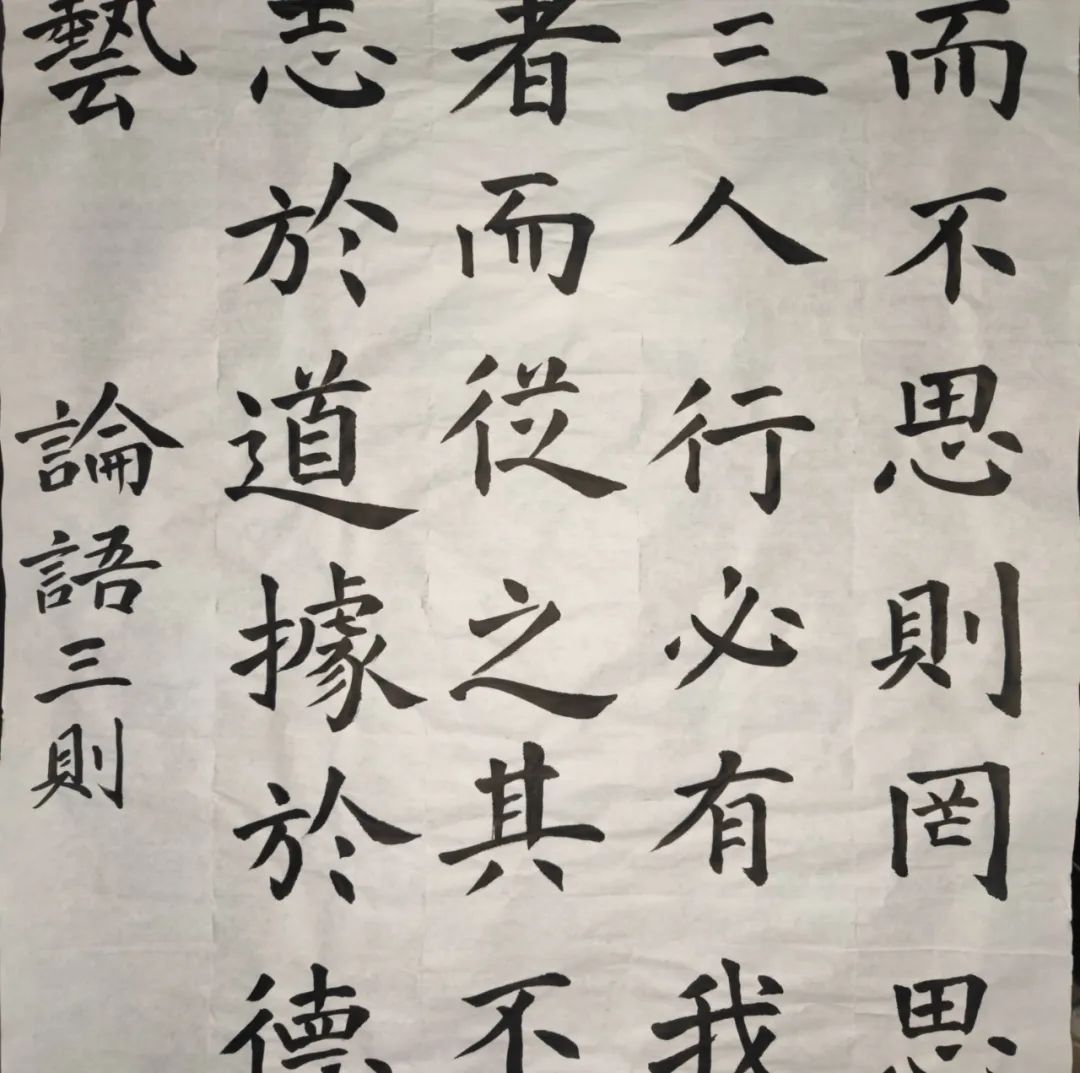 而不思則罔思
三人行必有我
者而従之其不
志於道據於德
藝
論語三則